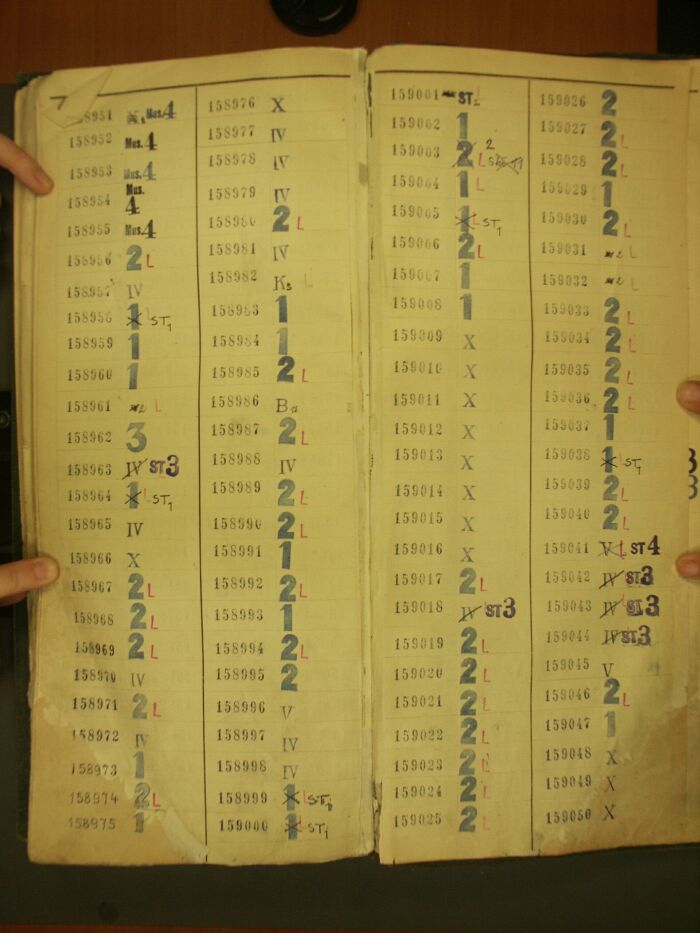 158951 X Mus.4
158952 Mus.4
158953 Mus.4
158954 Mus. 4
158955 Mus.4
158956 2 L
158957 IV
158958 1 ST1
158959 1
158960 1
158961 L
158962 3
158963 IV ST3
158964 1 L ST1
158965 IV
158966 X
158967 2 L
158968 2 L
158969 2 L
158970 IV
158971 2 L
158972 IV
158973 1
158974 2 L
158975 1
158976 X
158977 IV
158978 IV
158979 IV
158980 2 L
158981 IV
158982 Ks L
158983 1
158984 1
158985 2 L
158986 Ba
158987 2 L
158988 IV
158989 2 L
158990 2 L
158991 1
158992 2 L
158993 1
158994 2 L
158995 2
158996 V
158997 IV
158998 IV
158999 1 L ST2
159000 1 L ST1
159001 ST2 L
159002 1
159003 2 L 2
159004 1 L
159005 1 L ST1
159006 2 L
159007 1
159008 1
159009 X
159010 X
159011 X
159012 X
159013 X
159014 X
159015 X
159016 X
159017 2 L
159018 IV ST3
159019 2 L
159020 2 L
159021 2 L
159022 2 L
159023 2 L
159024 2 L
159025 2 L
159026 2
159027 2 L
159028 2 L
159029 1
159030 2 L
159031 L
159032 L
159033 2 L
159034 2 L
159035 2 L
159036 2 L
159037 1
159038 1 L ST1
159039 2 L
159040 2 L
159041 V L ST4
159042 IV ST3
159043 IV ST3
159044 IV ST3
159045 V
159046 2 L
159047 1
159048 X
159049 X
159050 X